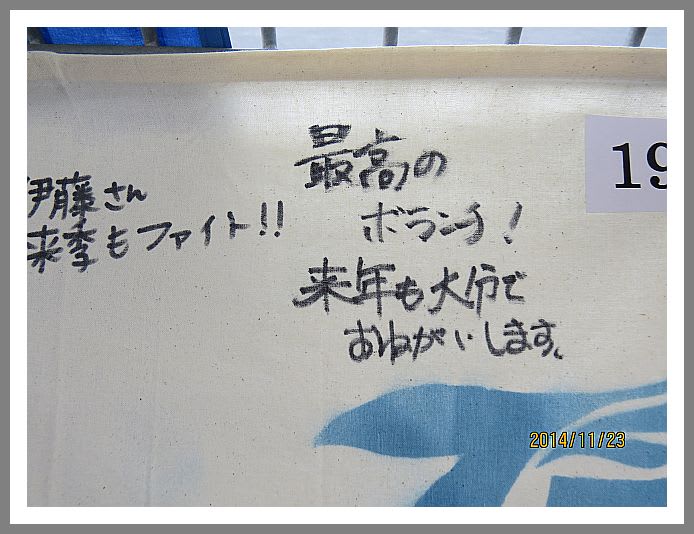 伊藤さん
来季もファイト!!
最高の
ボランチ!
来年も大分で
おねがいします。
19
2014/11/23